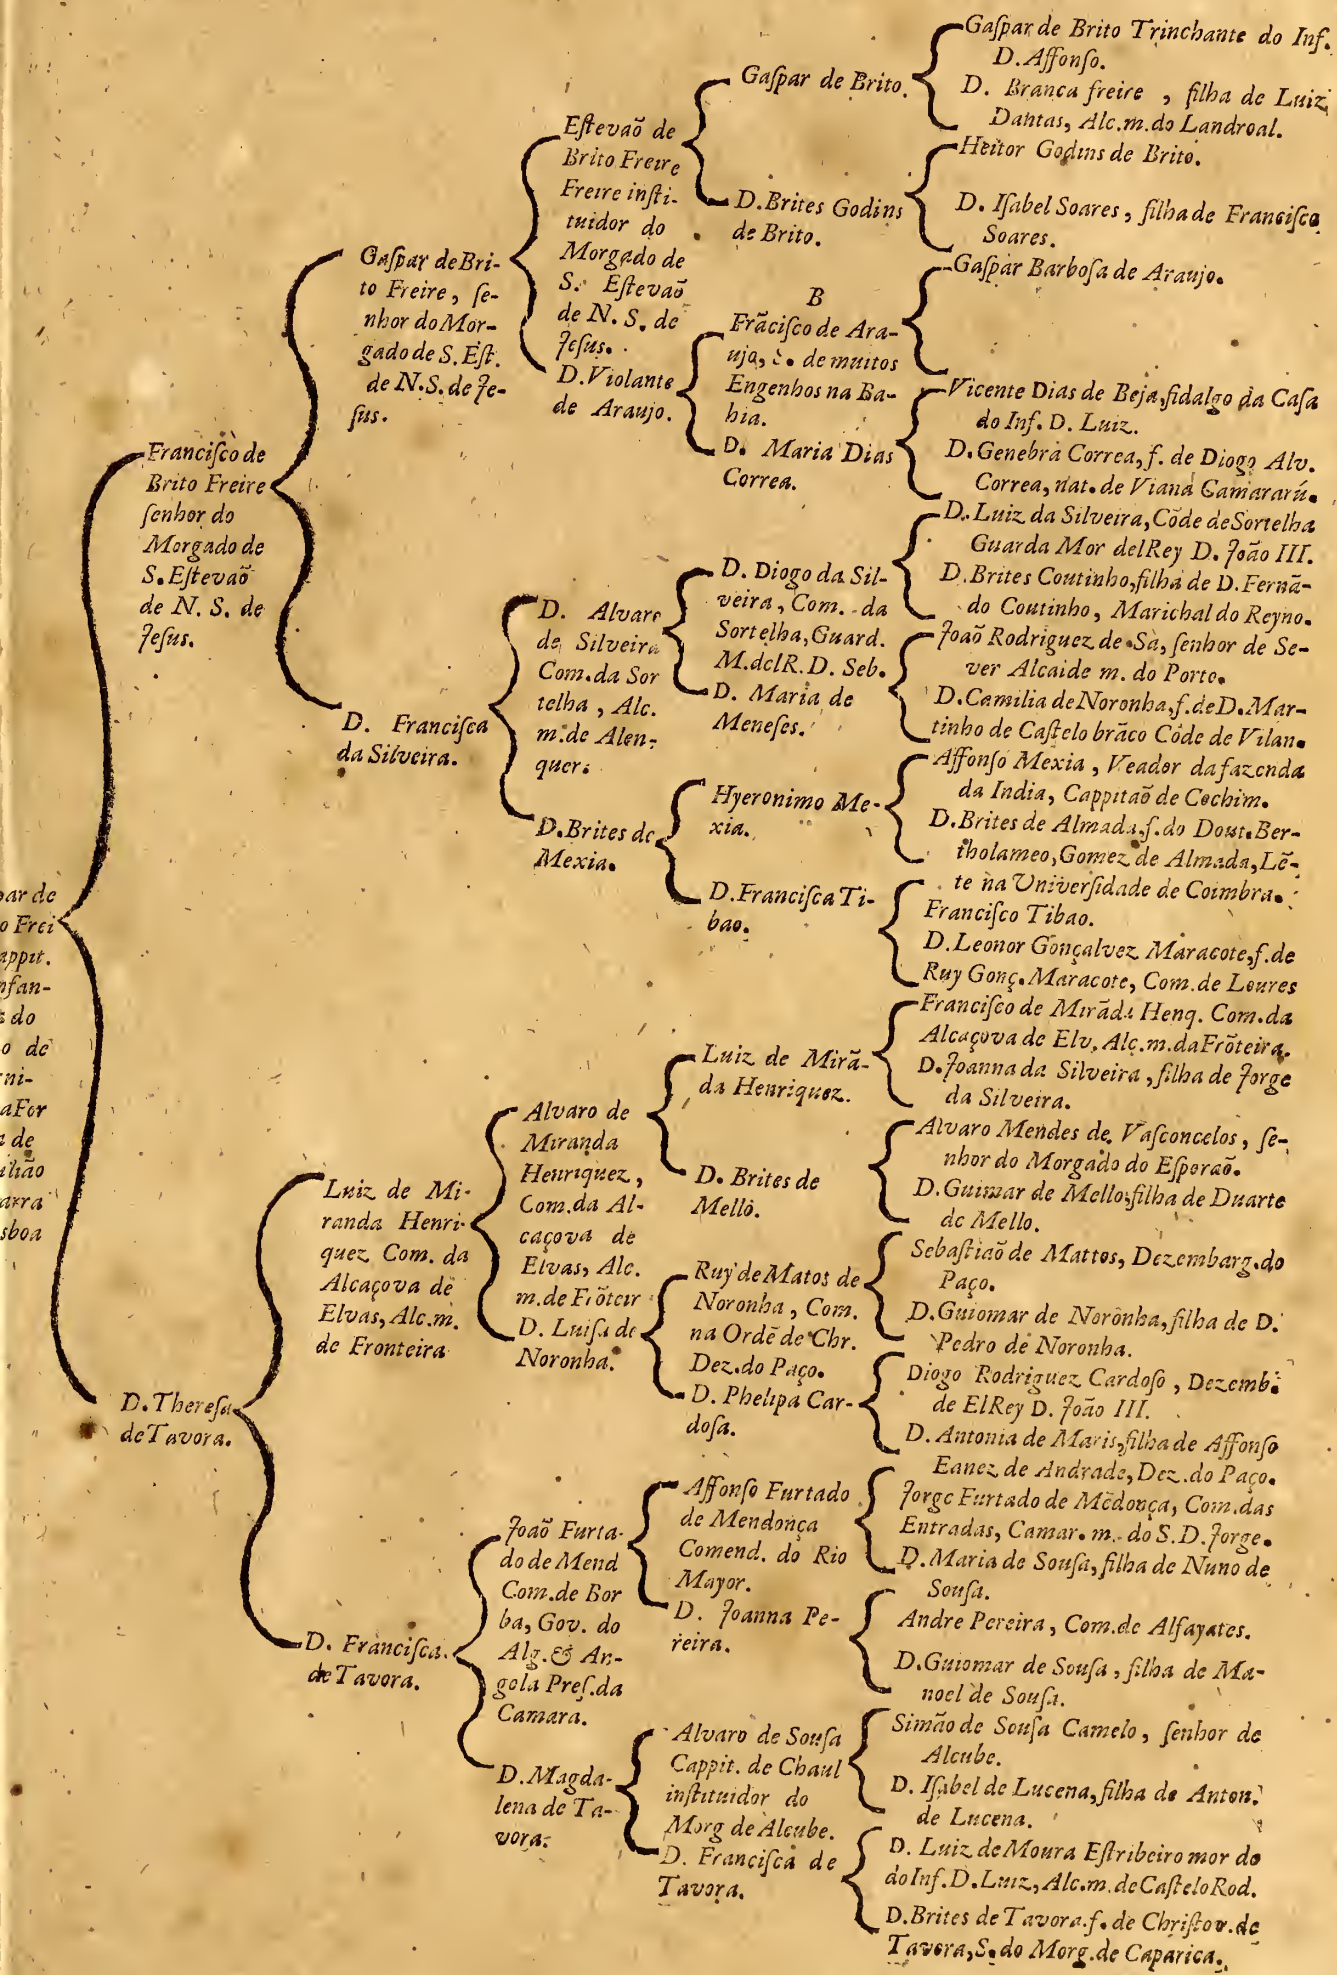 par de
o Frei
appit.
nfan-
s do
o de
ni-
aFor
a de
ilião
arra
sboa
Franciſco de
Brito Freire
ſenhor do
Morgado de
S. Eſtevaõ
de N. S. de
Jeſus.
D. Thereſa
de Tavora.
Gaſpar de Bri-
to Freire, ſe-
nhor do Mor-
gado de S. Eſt.
de N.S. de Je-
ſus.
D. Franciſca
da Silveira.
Luiz de Mi-
randa Henri-
quez Com. da
Alcaçova de
Elvas, Alc.m.
de Fronteira
D. Franciſca.
de Tavora.
Eſtevaõ de
Brito Freire
Freire inſti-
tuidor do
Morgado de
S. Eſtevaõ
de N. S. de
Jeſus.
D. Violante
de Araujo.
D. Alvaro
de Silveira
Com. da Sor
telha, Alc.
m. de Alen-
quer.
D. Brites de
Mexia.
Alvaro de
Miranda
Henriquez,
Com. da Al-
caçova de
Elvas, Alc.
m. de Frõteir
D. Luiſa de
Noronha.
Joaõ Furta-
do de Mend
Com. de Bor
ba, Gov. do
Alg. & An-
gola Preſ. da
Camara.
D. Magda-
lena de Ta-
vora.
Gaſpar de Brito.
D. Brites Godins
de Brito.
B
Frãciſco de Ara-
ujo, S. de muitos
Engenhos na Ba-
hia.
D. Maria Dias
Correa.
D. Diogo da Sil-
veira, Com. da
Sortelha, Guard.
M. del R. D. Seb.
D. Maria de
Meneſes.
Hyeronimo Me-
xia.
D. Franciſca Ti-
bao.
Luiz de Mirã-
da Henriquez.
D. Brites de
Mello.
Ruy de Matos de
Noronha, Com.
na Ordẽ de Chr.
Dez. do Paço.
D. Phelipa Car-
doſa.
Affonſo Furtado
de Mendonça
Comend. do Rio
Mayor.
D. Joanna Pe-
reira.
Alvaro de Souſa
Cappit. de Chaul
inſtituidor do
Morg de Alcube.
D. Franciſca de
Tavora.
Gaſpar de Brito Trinchante do Inf.
D. Affonſo.
D. Branca freire, filha de Luiz
Dantas, Alc.m. do Landroal.
Heitor Godins de Brito.
D. Iſabel Soares, filha de Franciſco
Soares.
Gaſpar Barboſa de Araujo.
Vicente Dias de Beja, fidalgo da Caſa
do Inf. D. Luiz.
D. Genebra Correa, f. de Diogo Alv.
Correa, nat. de Viana Camararú.
D. Luiz da Silveira, Cõde de Sortelha
Guarda Mor del Rey D. João III.
D. Brites Coutinho, filha de D. Fernã-
do Coutinho, Marichal do Reyno.
Joaõ Rodriguez de Sà, ſenhor de Se-
ver Alcaide m. do Porto.
D. Camilia de Noronha, f. de D. Mar-
tinho de Caſtelo brãco Cõde de Vilan.
Affonſo Mexia, Veador da fazenda
da India, Cappitaõ de Cochim.
D. Brites de Almada, f. do Dout. Ber-
tholameo, Gomez de Almada, Lẽ-
te na Univerſidade de Coimbra.
Franciſco Tibao.
D. Leonor Gonçalvez Maracote, f. de
Ruy Gonç. Maracote, Com. de Loures
Franciſco de Mirãda Henq. Com. da
Alcaçova de Elv. Alc.m. da Frõteira.
D. Joanna da Silveira, filha de Jorge
da Silveira.
Alvaro Mendes de Vaſconcelos, ſe-
nhor do Morgado do Eſporaõ.
D. Guimar de Mello, filha de Duarte
de Mello.
Sebaſtiaõ de Mattos, Dezembarg. do
Paço.
D. Guiomar de Noronha, filha de D.
Pedro de Noronha.
Diogo Rodriguez Cardoſo, Dezemb.
de ElRey D. João III.
D. Antonia de Maris, filha de Affonſo
Eanez de Andrade, Dez. do Paço.
Jorge Furtado de Mẽdonça, Com. das
Entradas, Camar. m. do S. D. Jorge.
D. Maria de Souſa, filha de Nuno de
Souſa.
Andre Pereira, Com. de Alfayates.
D. Guiomar de Souſa, filha de Ma-
noel de Souſa.
Simão de Souſa Camelo, ſenhor de
Alcube.
D. Iſabel de Lucena, filha de Anton.
de Lucena.
D. Luiz de Moura Eſtribeiro mor do
do Inf. D. Luiz, Alc.m. de Caſtelo Rod.
D. Brites de Tavora. f. de Chriſtov. de
Tavora, S. do Morg. de Caparica.